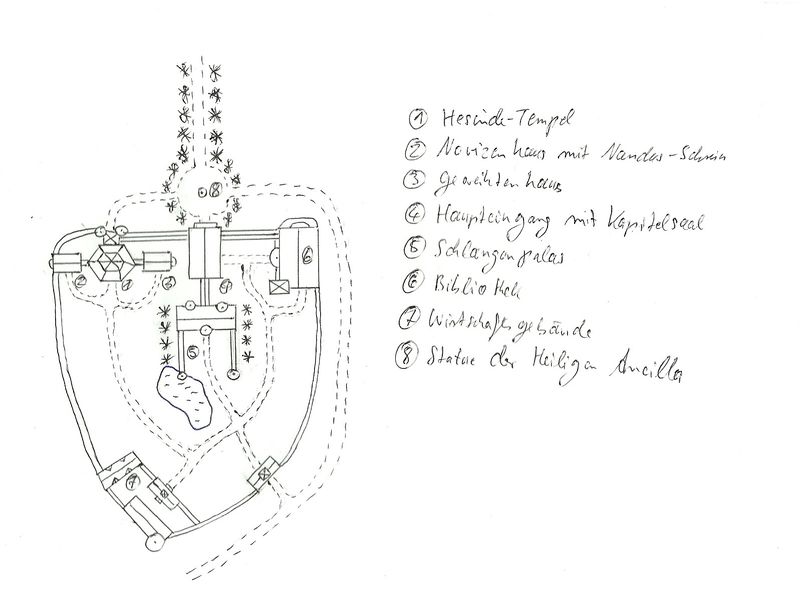 ① Hesinde-Tempel
② Novizenhaus mit Nandus-Schrein
③ Geweihtenhaus
④ Haupteingang mit Kapitelsaal
⑤ Schlangenpalas
⑥ Bibliothek
⑦ Wirtschaftsgebäude
⑧ Statue der Heiligen Ancilla
8
2
1
3
4
6
5
7